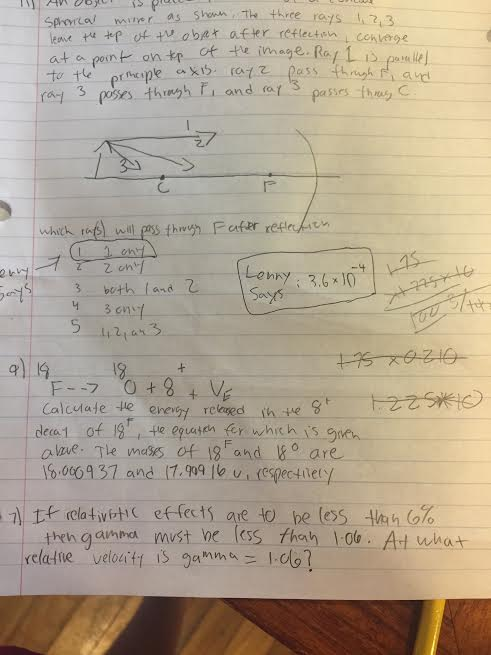 11) An object is
spherical mirror as shown. The three rays 1, 2, 3
leave the top of the object after reflection, converge
at a point on top of the image. Ray 1 is parallel
to the principle axis. ray 2 pass through F, and
ray 3 passes through F, and ray 3 passes through C.
1
2
3
C F
which ray(s) will pass through F after reflection
1 1 only
2 2 only
3 both 1 and 2
4 3 only
5 1, 2, an 3
Lenny
Says
Lenny
Says : 3.6 x 10-4
1.75
1.75 x 0.210
9) 18 18 +
F --> O + 8 + VE
Calculate the energy released in the 8+
decay of 18F, the equation for which is given
above. The masses of 18F and 18O are
18.000937 and 17.99916 u, respectively
7) If relativistic effects are to be less than 6%
then gamma must be less than 1.06. At what
relative velocity is gamma = 1.06?